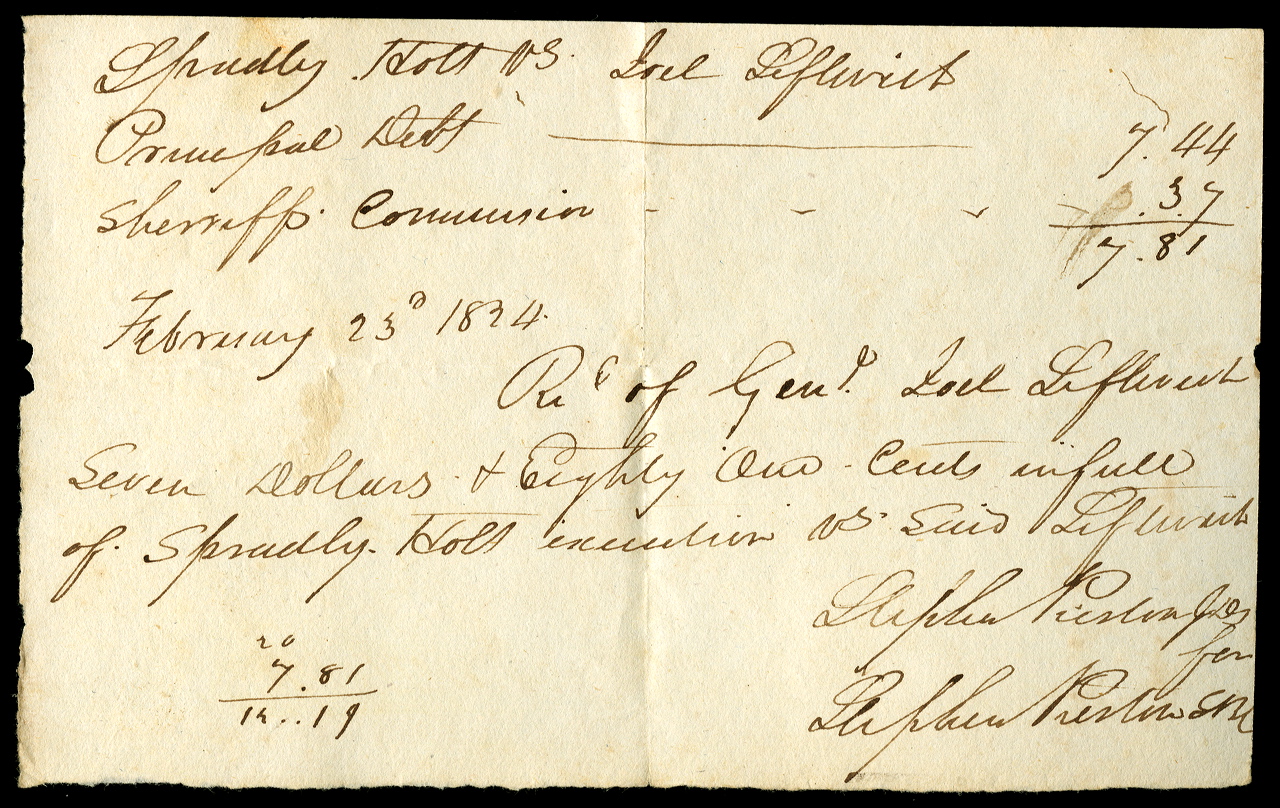 Spradly Holt vs. Joel Leftwich
Principal Debt 7.44
Sherriffs Commission - - - - .37
7.81
February 23d 1824.
Recd of Genl. Joel Leftwich
Seven Dollars & Eighty One Cents in full
of Spradly Holt execution vs. Said Leftwich
Stephen Preston
for
Stephen Preston
20
7.81
12..19